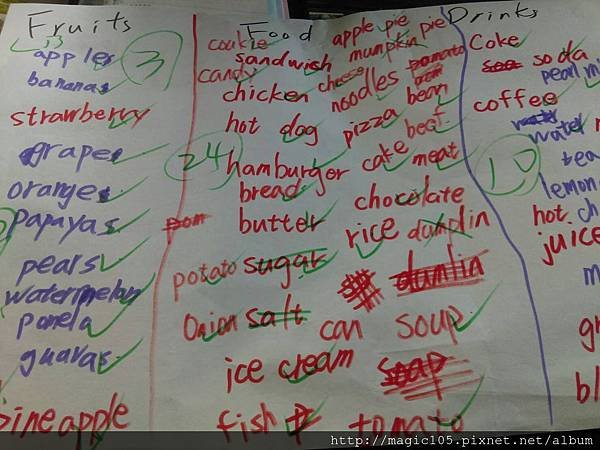 Fruits
apples
3
bananas
strawberry
grapes
oranges
Papayas
pears
watermelon
panela
guavas
pineapple
Food
cookie
apple pie
sandwish
mumpkin pie
candy
cheese
chicken
noodles
bean
hot dog
pizza
beef
24
hamburger
cake
meat
bread
chocolate
butter
rice
dumplin
potato
sugar
dumlin
onion
salt
can
soup
ice cream
soap
fish
tomato
Drinks
Coke
soda
pearl mi
coffee
water
10
tea
lemon
hot ch
juice
m
gr
bl
http://magic105.pixnet.net/album